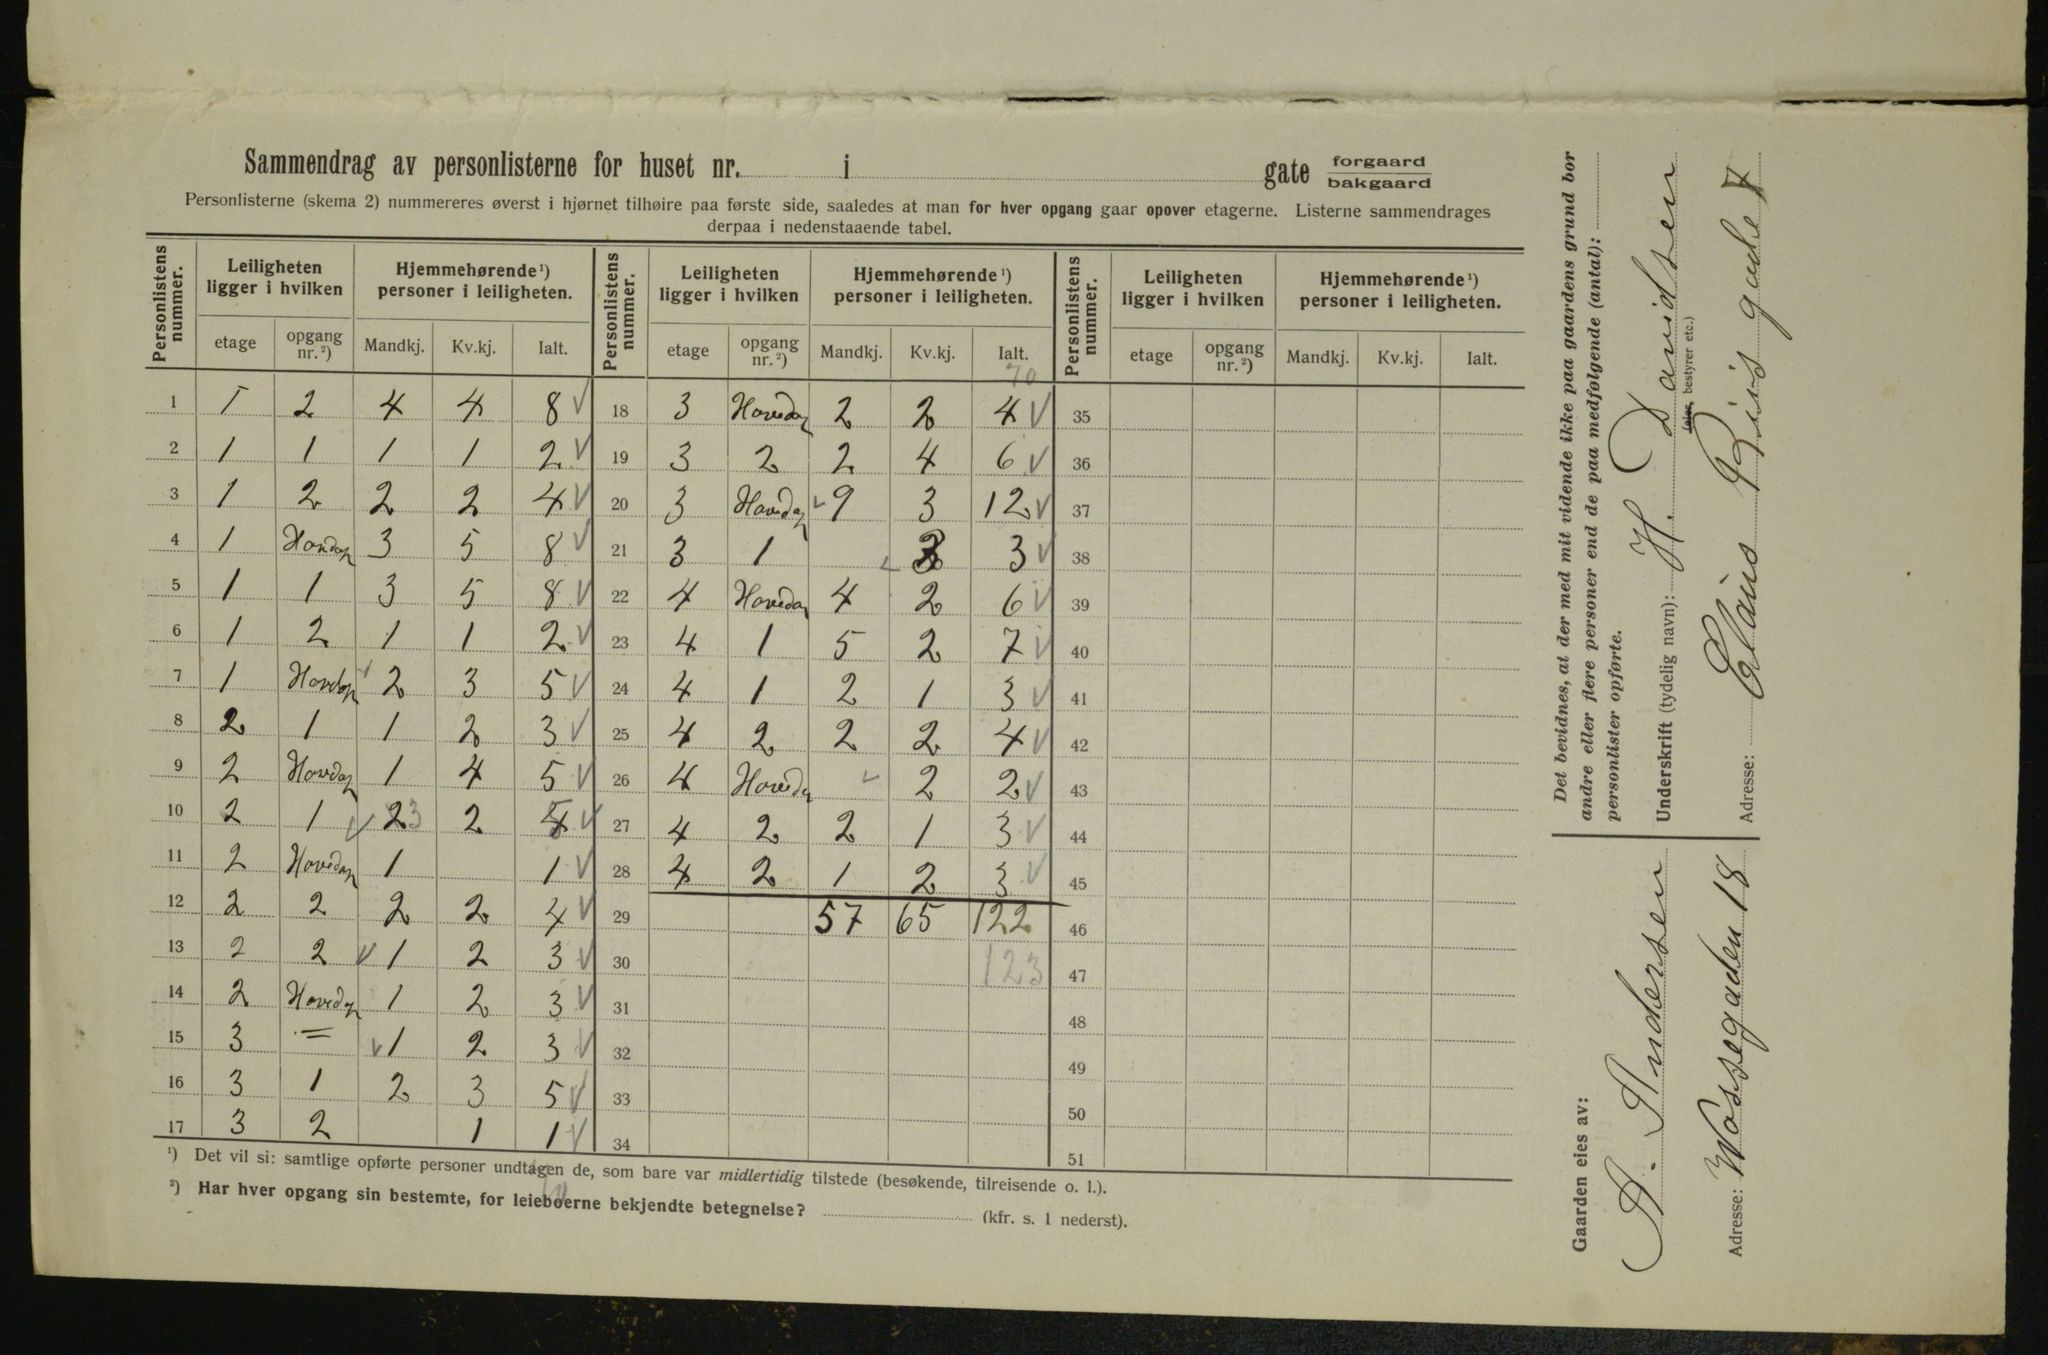 Sammendrag av personlisterne for huset nr. i gate forgaard bakgaard
Personlisterne (skema 2) nummereres øverst i hjørnet tilhøire paa første side, saaledes at man for hver opgang gaar opover etagerne. Listerne sammendrages
derpaa i nedenstaaende tabel.
Personlistens nummer. Leiligheten ligger i hvilken Hjemmehørende ¹) personer i leiligheten. Personlistens nummer. Leiligheten ligger i hvilken Hjemmehørende ¹) personer i leiligheten. Personlistens nummer. Leiligheten ligger i hvilken Hjemmehørende ¹) personer i leiligheten.
etage opgang nr. ²) Mandkj. Kv.kj. Ialt. etage opgang nr. ²) Mandkj. Kv.kj. Ialt. etage opgang nr. ²) Mandkj. Kv.kj. Ialt.
70
1 1 2 4 4 8 √ 18 3 Hovedop 2 2 4 √ 35
2 1 1 1 1 2 √ 19 3 2 2 4 6 √ 36
3 1 2 2 2 4 √ 20 3 Hovedop √ 9 3 12 √ 37
4 1 Hovdop 3 5 8 √ 21 3 1 3 3 √ 38
5 1 1 3 5 8 √ 22 4 Hovedop 4 2 6 √ 39
6 1 2 1 1 2 √ 23 4 1 5 2 7 √ 40
7 1 Hovdop √ 2 3 5 √ 24 4 1 2 1 3 √ 41
8 2 1 1 2 3 √ 25 4 2 2 2 4 √ 42
9 2 Hovedop 1 4 5 √ 26 4 Hovedop √ 2 2 √ 43
10 2 1 √ 2 3 2 4 √ 27 4 2 2 1 3 √ 44
11 2 Hovedop 1 1 √ 28 4 2 1 2 3 √ 45
12 2 2 2 2 4 √ 29 57 65 122 46
13 2 2 √ 1 2 3 √ 30 123 47
14 2 Hovedop 1 2 3 √ 31 48
15 3 = √ 1 2 3 √ 32 49
16 3 1 2 3 5 √ 33 50
17 3 2 1 1 √ 34 51
¹) Det vil si: samtlige opførte personer undtagen de, som bare var midlertidig tilstede (besøkende, tilreisende o. l.).
²) Har hver opgang sin bestemte, for leieboerne bekjendte betegnelse? (kfr. s. 1 nederst).
Det bevidnes, at der med mit vidende ikke paa gaardens grund bor
andre eller flere personer end de paa medfølgende (antal):
personlister opførte.
Underskrift (tydelig navn): H. Davidsen
(eier, bestyrer etc.)
Adresse: Claus Riis gade 7
Gaarden eies av:
A. Andersen
Adresse: Wossegaden 18